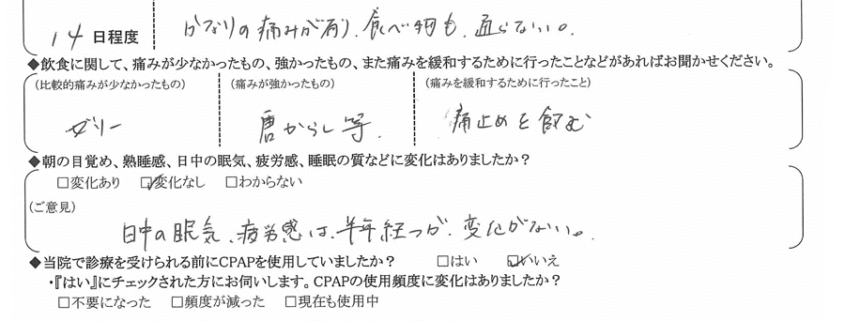 14 日程度 かなりの痛みが有り、食べ物も、通らない。
◆飲食に関して、痛みが少なかったもの、強かったもの、また痛みを緩和するために行ったことなどがあればお聞かせください。
(比較的痛みが少なかったもの) (痛みが強かったもの) (痛みを緩和するために行ったこと)
ゼリー 唐からし等. 痛止めを飲む
◆朝の目覚め、熟睡感、日中の眠気、疲労感、睡眠の質などに変化はありましたか?
□変化あり ☑変化なし □わからない
(ご意見)
日中の眠気、疲労感は、半年経つが、変化がない。
◆当院で診療を受けられる前にCPAPを使用していましたか? □はい ☑いいえ
・『はい』にチェックされた方にお伺いします。CPAPの使用頻度に変化はありましたか?
□不要になった □頻度が減った □現在も使用中